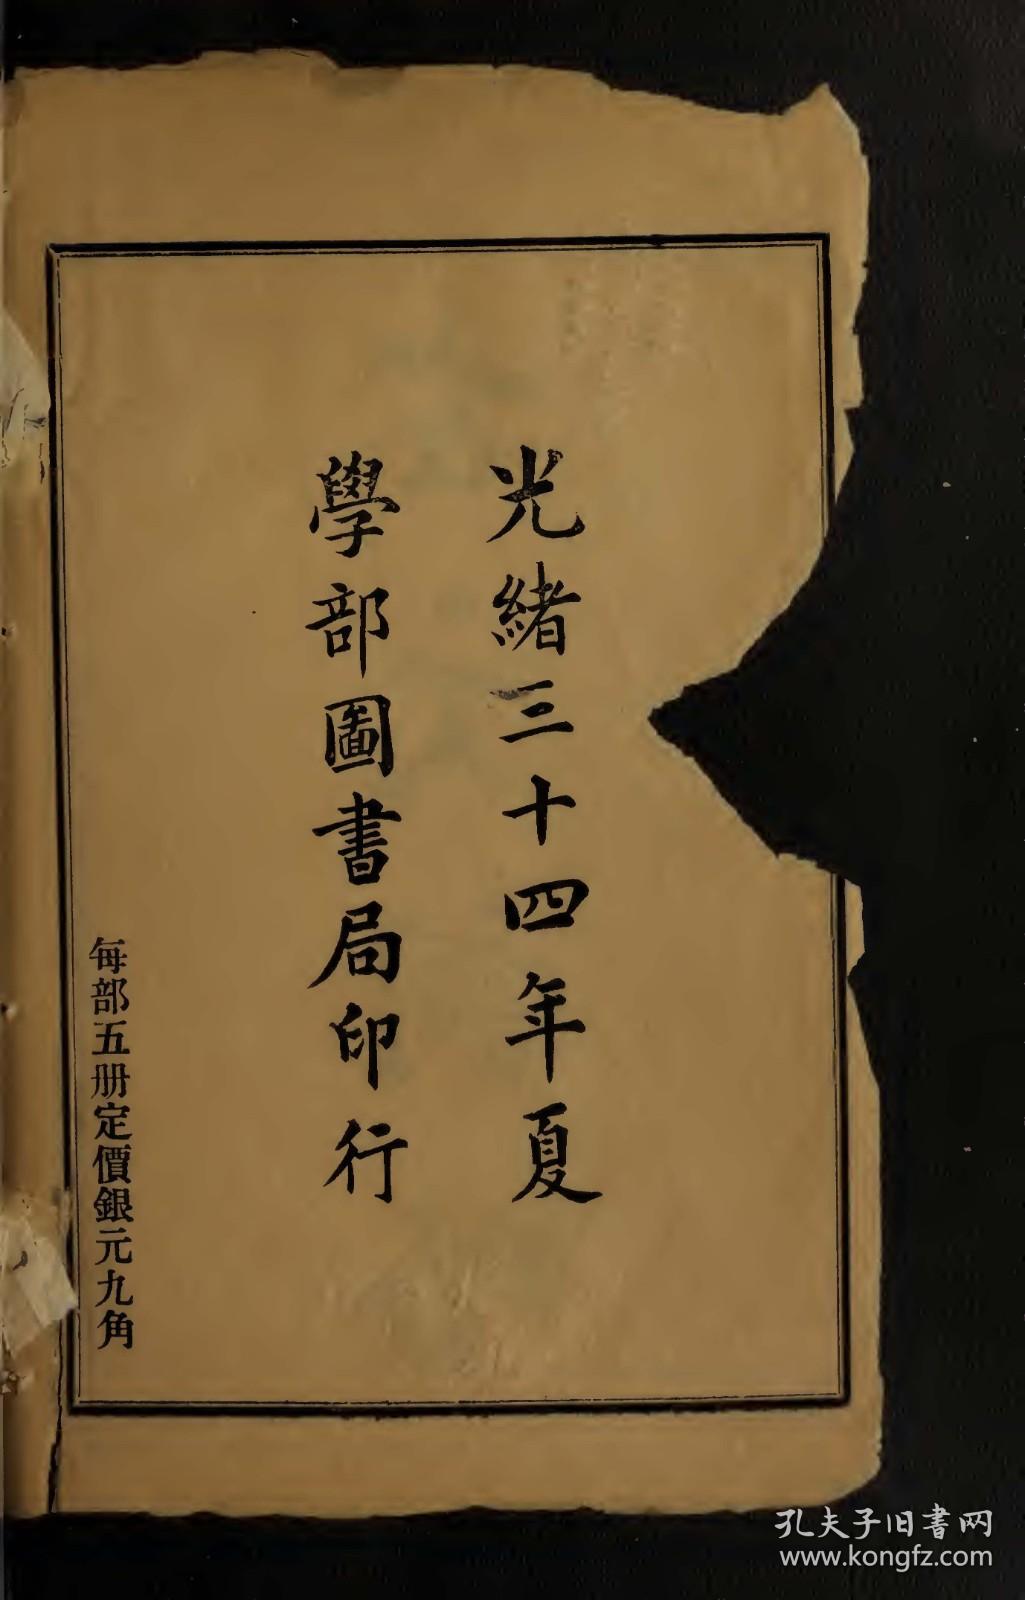 光緒三十四年夏
學部圖書局印行
每部五册定價銀元九角
孔夫子旧書网
www.kongfz.com